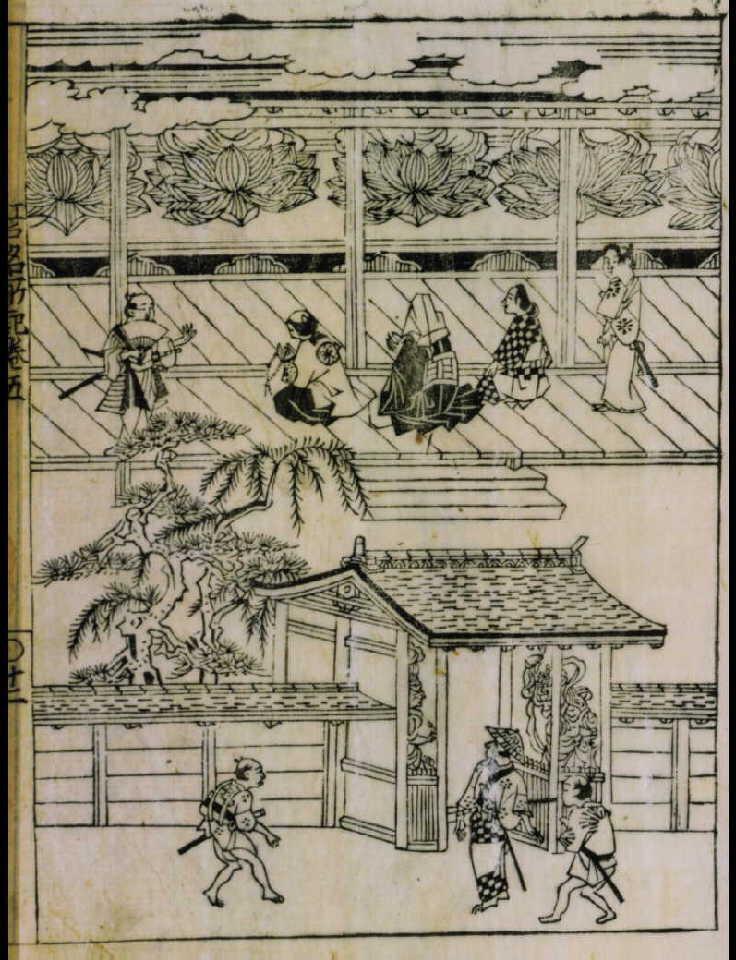 江戸名所記卷五
〇廿一